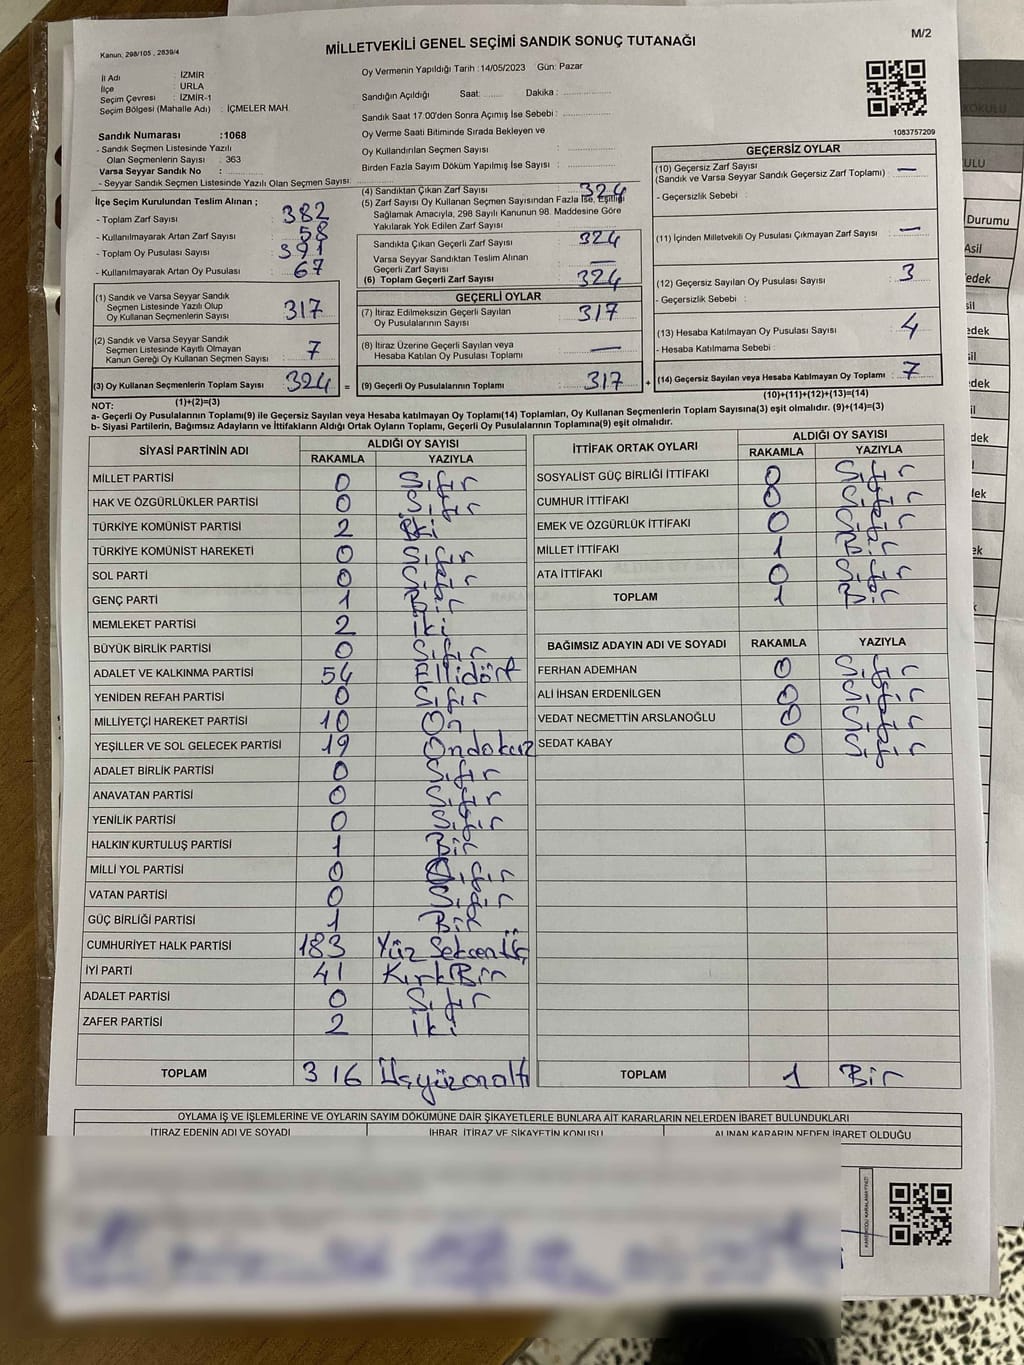 M/2
Kanun: 298/105, 2839/4
MİLLETVEKİLİ GENEL SEÇİMİ SANDIK SONUÇ TUTANAĞI
İl Adı : İZMİR
İlçe : URLA
Seçim Çevresi : İZMİR-1
Seçim Bölgesi (Mahalle Adı) : İÇMELER MAH.
Sandık Numarası : 1068
- Sandık Seçmen Listesinde Yazılı
Olan Seçmenlerin Sayısı : 363
Varsa Seyyar Sandık No :
- Seyyar Sandık Seçmen Listesinde Yazılı Olan Seçmen Sayısı:
Oy Vermenin Yapıldığı Tarih : 14/05/2023 Gün: Pazar
Sandığın Açıldığı Saat: Dakika :
Sandık Saat 17.00'den Sonra Açımış İse Sebebi :
Oy Verme Saati Bitiminde Sırada Bekleyen ve
Oy Kullandırılan Seçmen Sayısı :
Birden Fazla Sayım Döküm Yapılmış İse Sayısı :
1083757209
İlçe Seçim Kurulundan Teslim Alınan ;
- Toplam Zarf Sayısı : 382
- Kullanılmayarak Artan Zarf Sayısı : 58
- Toplam Oy Pusulası Sayısı : 391
- Kullanılmayarak Artan Oy Pusulası : 67
(1) Sandık ve Varsa Seyyar Sandık
Seçmen Listesinde Yazılı Olup
Oy Kullanan Seçmenlerin Sayısı : 317
(2) Sandık ve Varsa Seyyar Sandık
Seçmen Listesinde Kayıtlı Olmayan
Kanun Gereği Oy Kullanan Seçmen Sayısı : 7
(3) Oy Kullanan Seçmenlerin Toplam Sayısı : 324 =
(1)+(2)=(3)
(4) Sandıktan Çıkan Zarf Sayısı : 324
(5) Zarf Sayısı Oy Kullanan Seçmen Sayısından Fazla İse, Eşitliği
Sağlamak Amacıyla, 298 Sayılı Kanunun 98. Maddesine Göre
Yakılarak Yok Edilen Zarf Sayısı :
Sandıkta Çıkan Geçerli Zarf Sayısı : 324
Varsa Seyyar Sandıktan Teslim Alınan
Geçerli Zarf Sayısı : —
(6) Toplam Geçerli Zarf Sayısı : 324
GEÇERLİ OYLAR
(7) İtiraz Edilmeksizin Geçerli Sayılan
Oy Pusulalarının Sayısı : 317
(8) İtiraz Üzerine Geçerli Sayılan veya
Hesaba Katılan Oy Pusulası Toplamı : —
(9) Geçerli Oy Pusulalarının Toplamı : 317 +
GEÇERSİZ OYLAR
(10) Geçersiz Zarf Sayısı
(Sandık ve Varsa Seyyar Sandık Geçersiz Zarf Toplamı) : —
- Geçersizlik Sebebi :
(11) İçinden Milletvekili Oy Pusulası Çıkmayan Zarf Sayısı : —
(12) Geçersiz Sayılan Oy Pusulası Sayısı : 3
- Geçersizlik Sebebi :
(13) Hesaba Katılmayan Oy Pusulası Sayısı : 4
- Hesaba Katılmama Sebebi :
(14) Geçersiz Sayılan veya Hesaba Katılmayan Oy Toplamı : 7
(10)+(11)+(12)+(13)=(14)
NOT:
a- Geçerli Oy Pusulasılarının Toplamı(9) ile Geçersiz Sayılan veya Hesaba katılmayan Oy Toplamı(14) Toplamları, Oy Kullanan Seçmenlerin Toplam Sayısına(3) eşit olmalıdır. (9)+(14)=(3)
b- Siyasi Partilerin, Bağımsız Adayların ve İttifakların Aldığı Ortak Oyların Toplamı, Geçerli Oy Pusulalarının Toplamına(9) eşit olmalıdır.
SİYASİ PARTİNİN ADI ALDIĞI OY SAYISI
RAKAMLA YAZIYLA
MİLLET PARTİSİ 0 Sıfır
HAK VE ÖZGÜRLÜKLER PARTİSİ 0 Sıfır
TÜRKİYE KOMÜNİST PARTİSİ 2 İki
TÜRKİYE KOMÜNİST HAREKETİ 0 Sıfır
SOL PARTİ 0 Sıfır
GENÇ PARTİ 1 Bir
MEMLEKET PARTİSİ 2 iki
BÜYÜK BİRLİK PARTİSİ 0 Sıfır
ADALET VE KALKINMA PARTİSİ 54 Ellidört
YENİDEN REFAH PARTİSİ 0 Sıfır
MİLLİYETÇİ HAREKET PARTİSİ 10 On
YEŞİLLER VE SOL GELECEK PARTİSİ 19 Ondokuz
ADALET BİRLİK PARTİSİ 0 Sıfır
ANAVATAN PARTİSİ 0 Sıfır
YENİLİK PARTİSİ 0 Sıfır
HALKIN KURTULUŞ PARTİSİ 1 Bir
MİLLİ YOL PARTİSİ 0 Sıfır
VATAN PARTİSİ 0 Sıfır
GÜÇ BİRLİĞİ PARTİSİ 1 Bir
CUMHURİYET HALK PARTİSİ 183 Yüz Seksenüç
İYİ PARTİ 41 Kırk Bir
ADALET PARTİSİ 0 Sıfır
ZAFER PARTİSİ 2 iki
TOPLAM 316 Üçyüzonaltı
İTTİFAK ORTAK OYLARI ALDIĞI OY SAYISI
RAKAMLA YAZIYLA
SOSYALİST GÜÇ BİRLİĞİ İTTİFAKI 0 Sıfır
CUMHUR İTTİFAKI 0 Sıfır
EMEK VE ÖZGÜRLÜK İTTİFAKI 0 Sıfır
MİLLET İTTİFAKI 1 Bir
ATA İTTİFAKI 0 Sıfır
TOPLAM 1 Bir
BAĞIMSIZ ADAYIN ADI VE SOYADI RAKAMLA YAZIYLA
FERHAN ADEMHAN 0 Sıfır
ALİ İHSAN ERDENİLGEN 0 Sıfır
VEDAT NECMETTİN ARSLANOĞLU 0 Sıfır
SEDAT KABAY 0 Sıfır
TOPLAM 1 Bir
OYLAMA İŞ VE İŞLEMLERİNE VE OYLARIN SAYIM DÖKÜMÜNE DAİR ŞİKAYETLERLE BUNLARA AİT KARARLARIN NELERDEN İBARET BULUNDUKLARI
İTİRAZ EDENİN ADI VE SOYADI İHBAR, İTİRAZ VE ŞİKAYETİN KONUSU ALINAN KARARIN NEDEN İBARET OLDUĞU
KAREKODU KARALAMAYINIZ!
KOKULU
ULU
Durumu
Asil
edek
sil
edek
sil
dek
il
dek
il
lek
ek